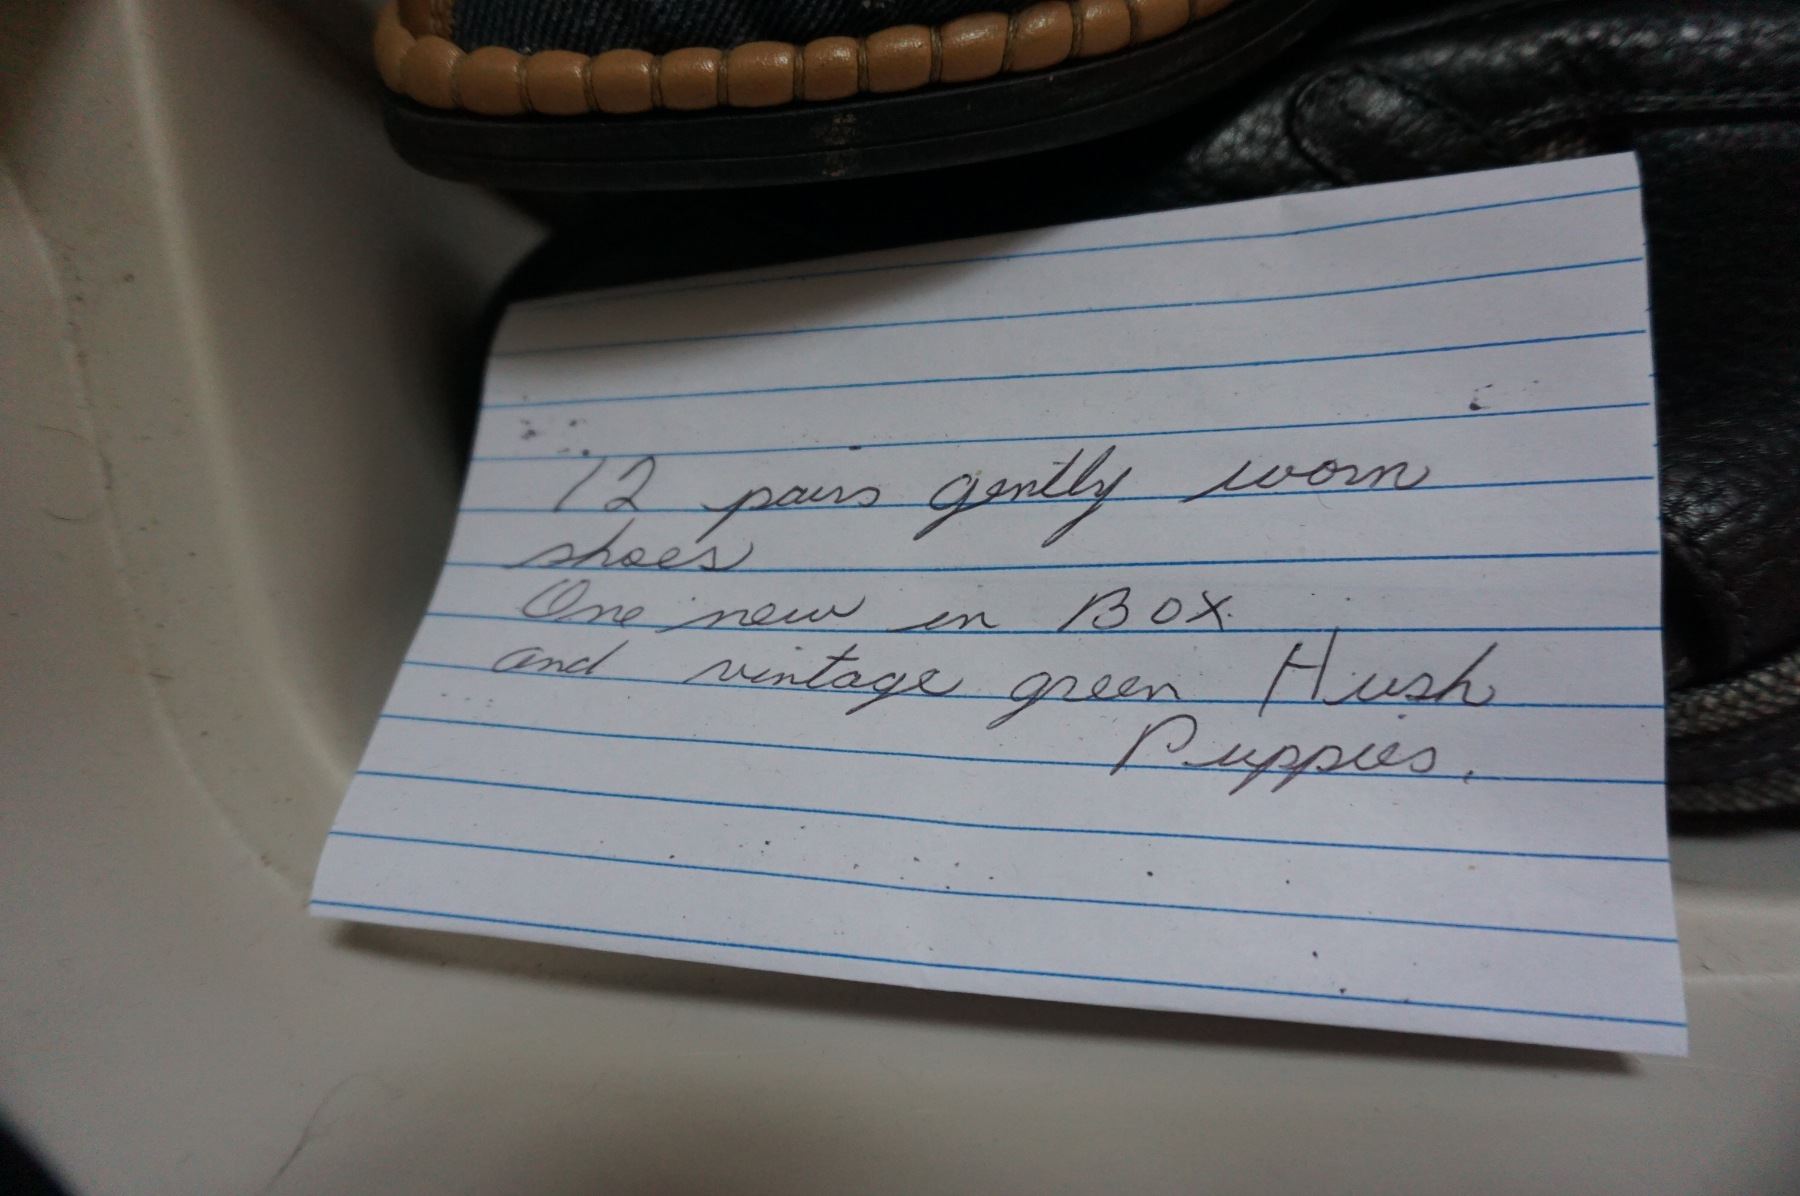 12 pairs gently worn
shoes
One new in Box
and vintage green Hush
Puppies.